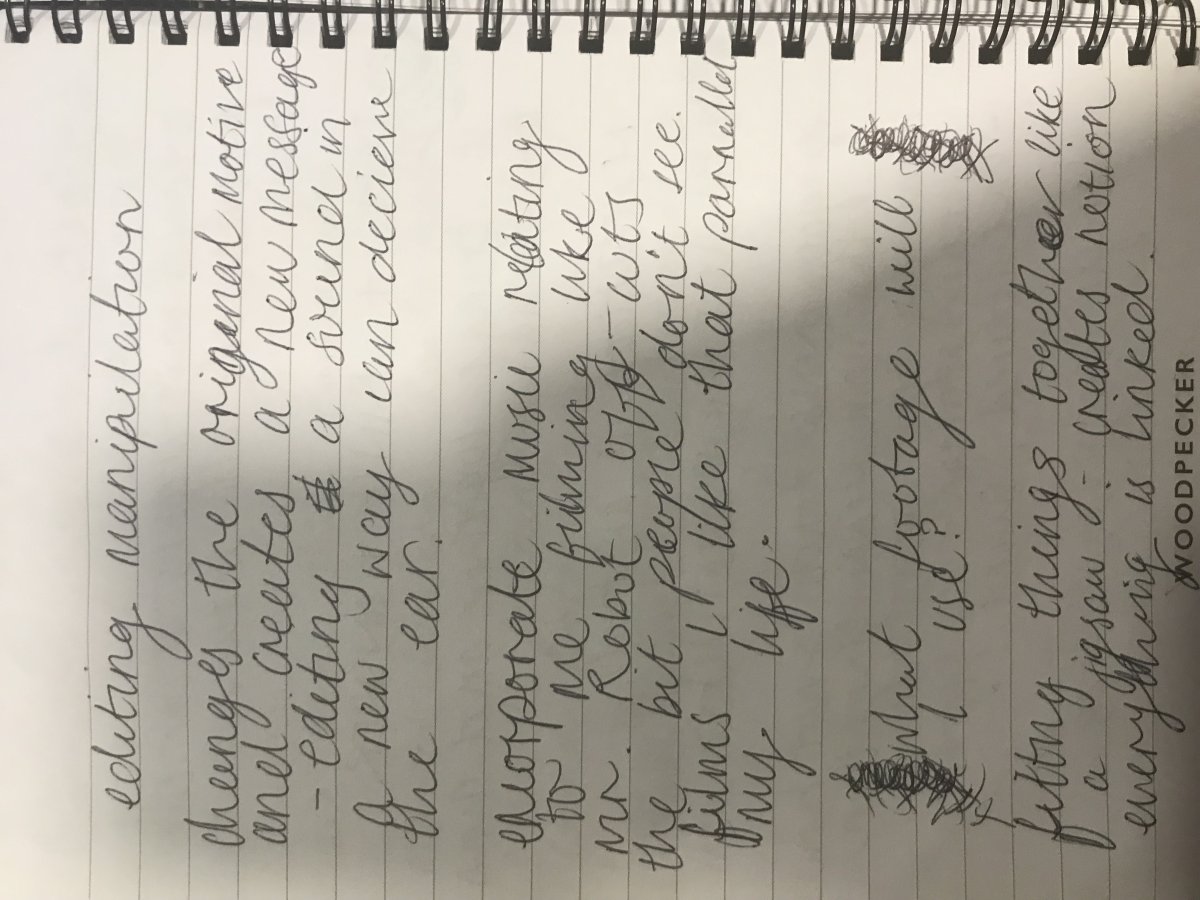 editing manipulation
changes the original motive
and creates a new message
- editing a sound in
a new way can decieve
the ear.
music relating
to me filming like
Mr. Robot off-cuts
the bit people don't see.
films I like that parralel
my life.
what footage will
I use?
fitting things together like
a jigsaw - creates notion
everything is linked.
WOODPECKER